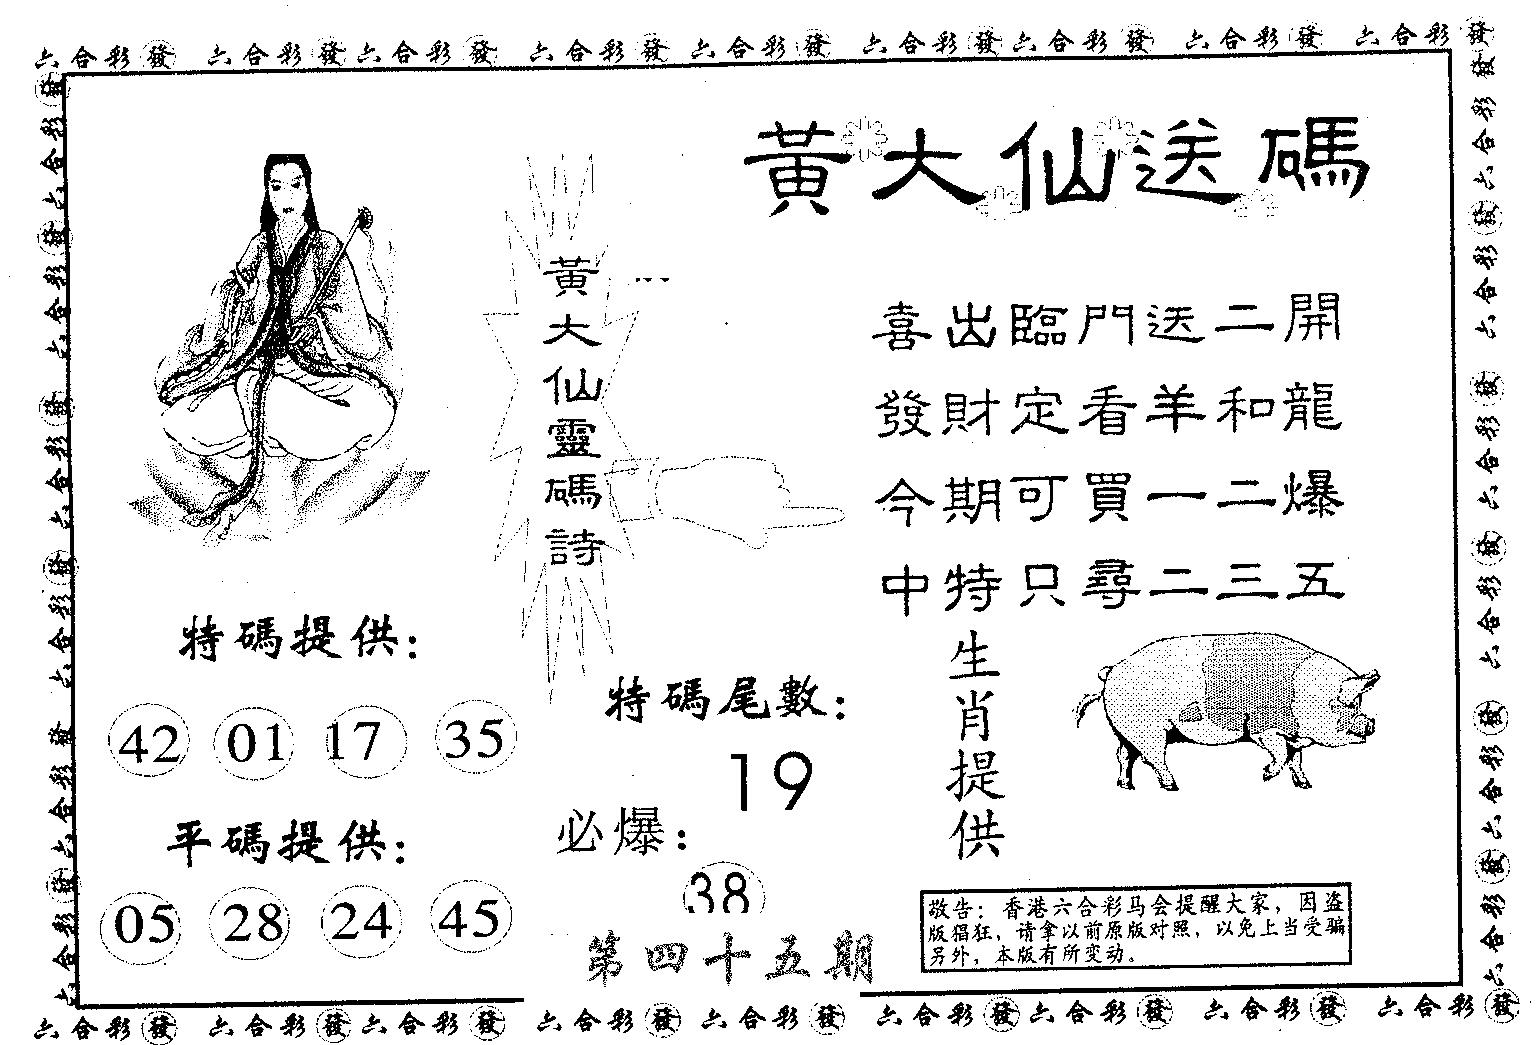 六合彩發 六合彩發 六合彩發 六合彩發 六合彩發 六合彩發 六合彩發 六合彩發 六合彩發
黃大仙送碼
黃大仙靈碼詩
喜出臨門送二開
發財定看羊和龍
今期可買一二爆
中特只尋二三五
特碼提供：
42 01 17 35
平碼提供：
05 28 24 45
特碼尾數：
19
必爆：
38
第四十五期
生肖提供
敬告：香港六合彩马会提醒大家，因盗
版猖狂，请拿以前原版对照，以免上当受骗
另外，本版有所变动。
發六合彩 發六合彩 發六合彩 發六合彩 發六合彩 發六合彩
發六合彩 發六合彩 發六合彩 發六合彩 發六合彩 發六合彩
六合彩發 六合彩發 六合彩發 六合彩發 六合彩發 六合彩發 六合彩發 六合彩發 六合彩發